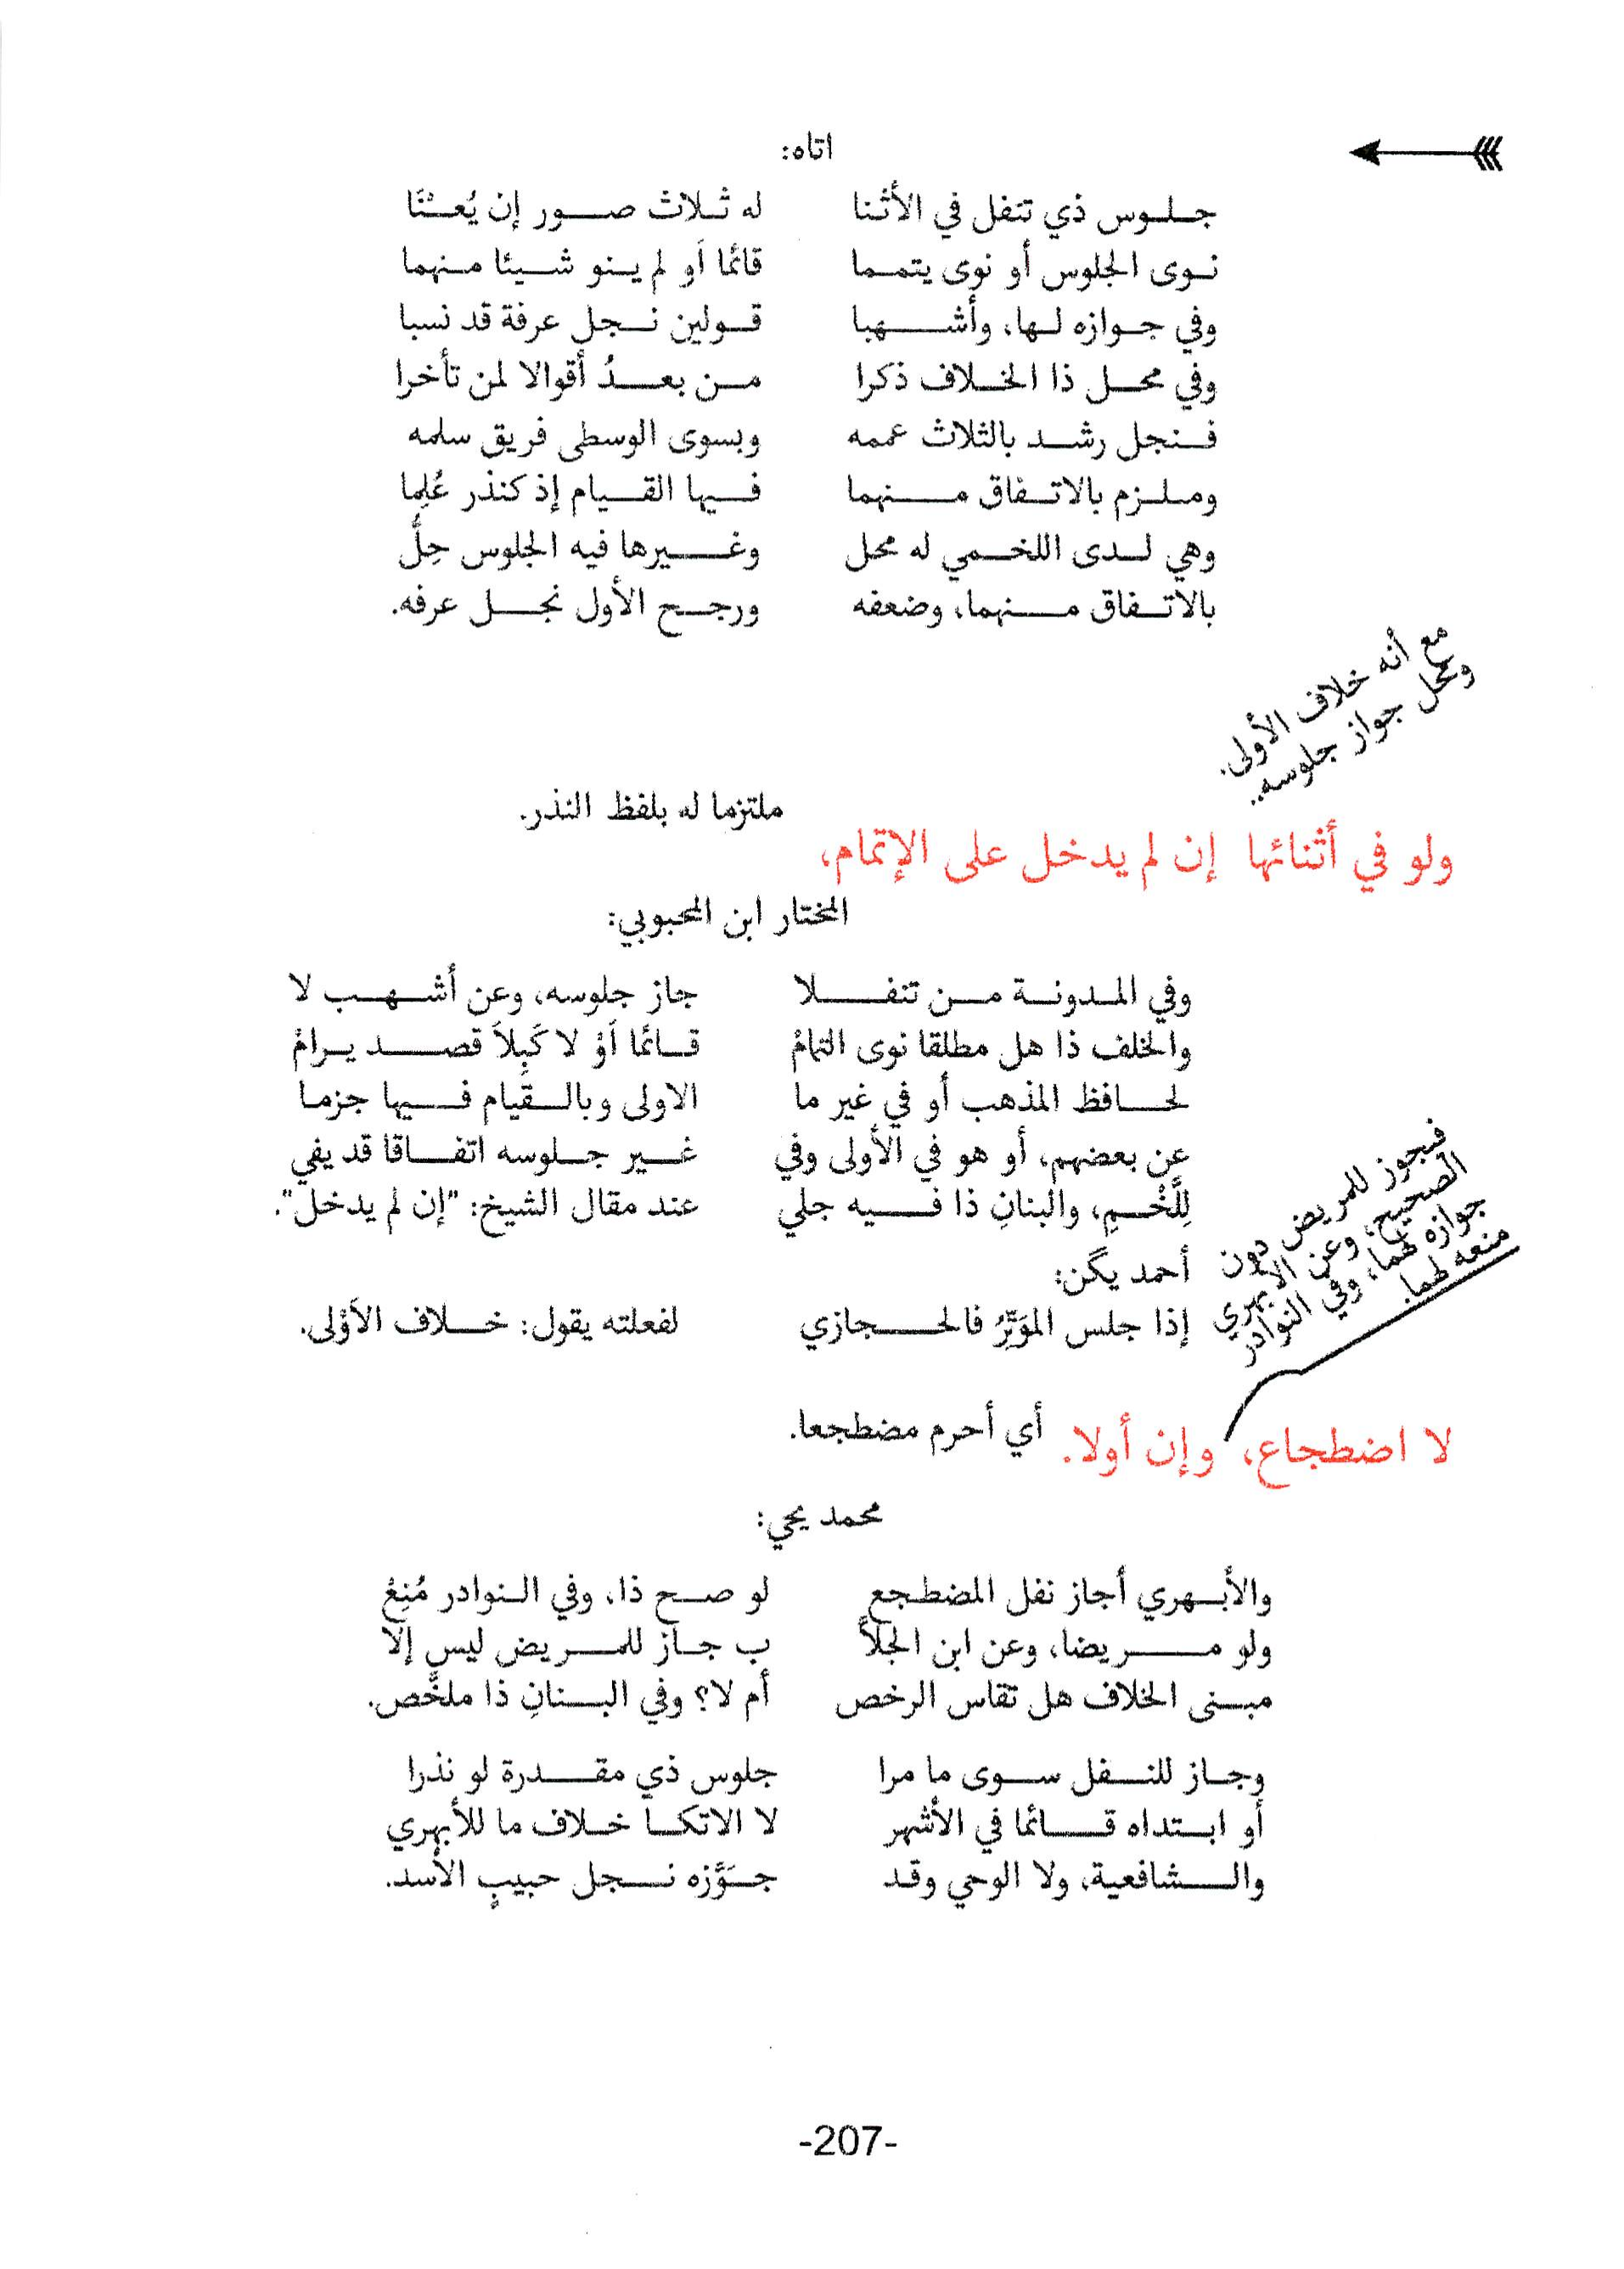 اتاه:
جلوس ذي تنفل في الأثنا له ثلاث صور إن يُعْنَا
نوى الجلوس أو نوى يتمما قائما اَو لم ينو شيئا منهما
وفي جوازه لها، وأشهبا قولين نجل عرفة قد نسبا
وفي محل ذا الخلاف ذكرا من بعدُ أقوالا لمن تأخرا
فنجل رشد بالثلاث عممه وبسوى الوسطى فريق سلمه
وملزم بالاتفاق منهما فيها القيام إذ كنذر عُلِما
وهي لدى اللخمي له محل وغيرها فيه الجلوس حِلُّ
بالاتفاق منهما، وضعفه ورجح الأول نجل عرفه.
مع أنه خلاف الأولى.
ومحل جواز جلوسه..
ملتزما له بلفظ النذر.
ولو في أثنائها إن لم يدخل على الإتمام،
المختار ابن المحبوبي:
وفي المدونة من تنفلا جاز جلوسه، وعن أشهب لا
والخلف ذا هل مطلقا نوى التمامْ قائما اَوْ لا كَبِلاَ قصد يرامْ
لحافظ المذهب أو في غير ما الاولى وبالقيام فيها جزما
عن بعضهم، أو هو في الأولى وفي غير جلوسه اتفاقا قد يفي
لِلَّخْمِ، والبنانِ ذا فيه جلي عند مقال الشيخ: "إن لم يدخل".
أحمد يگن:
إذا جلس الموَتِّرُ فالحجازي لفعلته يقول: خلاف الاَوْلى.
فيجوز للمريض دون
الصحيح، وعن الأبهري
جوازه لهما، وفي النوادر
منعه لهما.
لا اضطجاع، وإن أولا. أي أحرم مضطجعا.
محمد يحي:
والأبهري أجاز نفل المضطجع لو صح ذا، وفي النوادر مُنِعْ
ولو مريضا، وعن ابن الجلاَّ ب جاز للمريض ليس إلا
مبنى الخلاف هل تقاس الرخص أم لا؟ وفي البنانِ ذا ملخَّص.
وجاز للنفل سوى ما مرا جلوس ذي مقدرة لو نذرا
أو ابتداه قائما في الأشهر لا الاتكا خلاف ما للأبهري
والشافعية، ولا الوحي وقد جوَّزه نجل حبيبٍ الأسد.
-207-